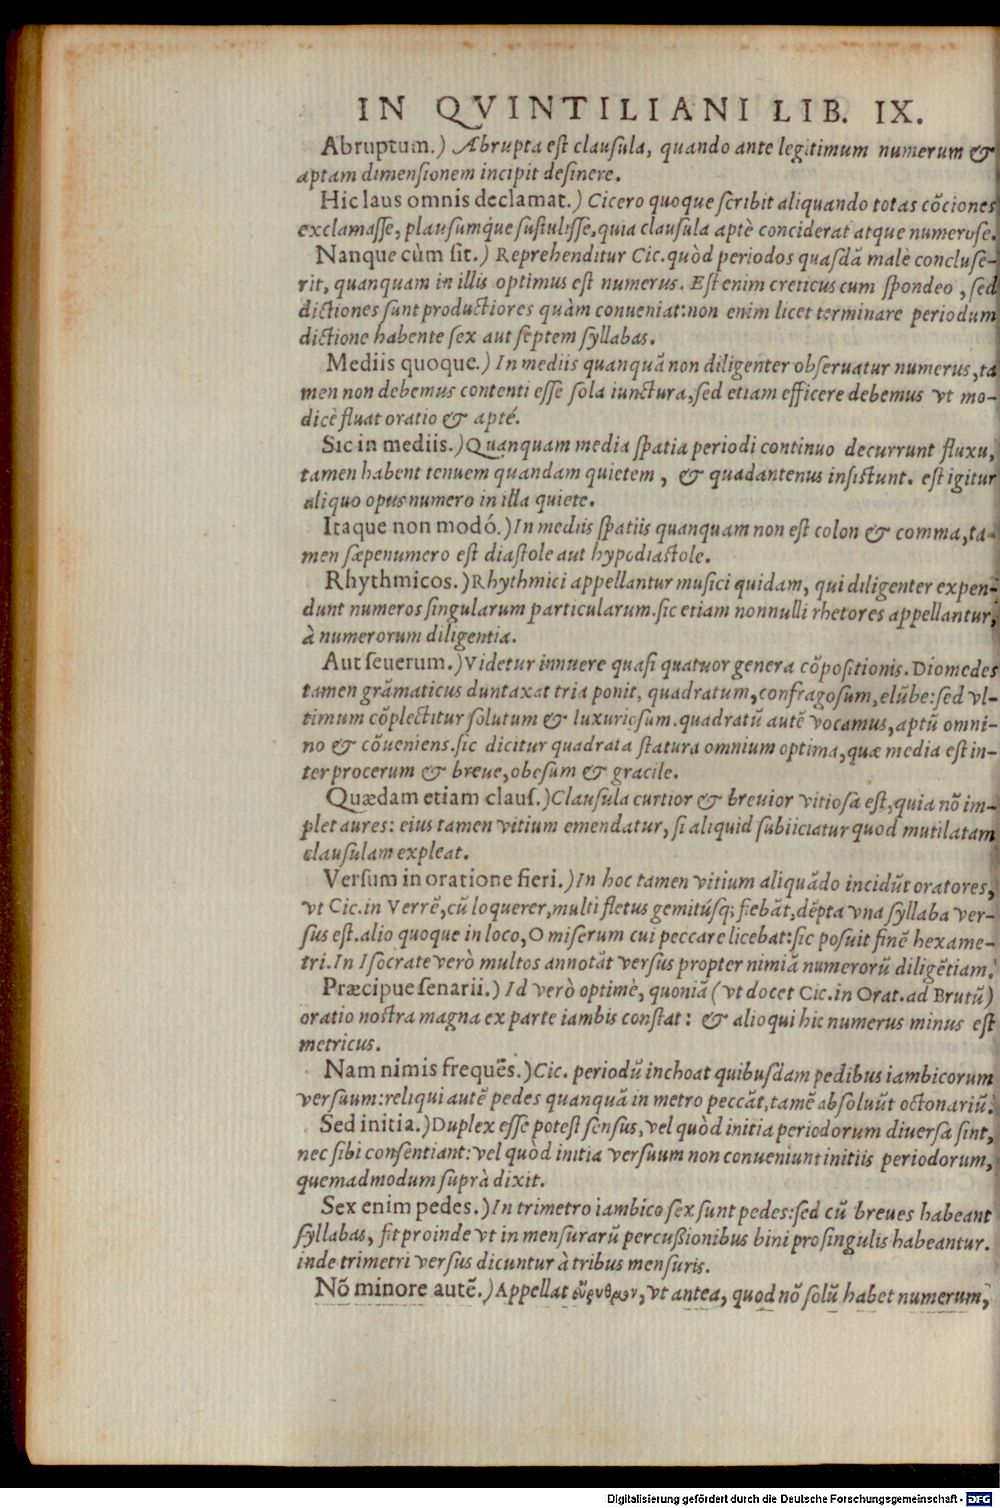 IN QVINTILIANI LIB. IX.
Abruptum.) Abrupta est clausula, quando ante legitimum numerum &
aptam dimensionem incipit desinere.
Hic laus omnis declamat.) Cicero quoque scribit aliquando totas cōciones
exclamasse, plausumq́ue sustulisse, quia clausula aptè conciderat atque numerose.
Nanque cùm sit.) Reprehenditur Cic. quòd periodos quasdā malè concluse-
rit, quanquam in illis optimus est numerus. Est enim creticus cum spondeo, sed
dictiones sunt productiores quàm conueniat: non enim licet terminare periodum
dictione habente sex aut septem syllabas.
Mediis quoque.) In mediis quanquā non diligenter obseruatur numerus, ta
men non debemus contenti esse sola iunctura, sed etiam efficere debemus vt mo-
dicè fluat oratio & apté.
Sic in mediis.) Quanquam media spatia periodi continuo decurrunt fluxu,
tamen habent tenuem quandam quietem, & quadantenus insistunt. est igitur
aliquo opus numero in illa quiete.
Itaque non modó.) In mediis spatiis quanquam non est colon & comma, ta-
men sæpenumero est diastole aut hypodiastole.
Rhythmicos.) Rhythmici appellantur musici quidam, qui diligenter expen-
dunt numeros singularum particularum. sic etiam nonnulli rhetores appellantur,
à numerorum diligentia.
Aut seuerum.) Videtur innuere quasi quatuor genera cōpositionis. Diomedes
tamen grāmaticus duntaxat tria ponit, quadratum, confragosum, elūbe: sed vl-
timum cōplectitur solutum & luxuriosum. quadratū autē vocamus, aptū omni-
no & cōueniens. sic dicitur quadrata statura omnium optima, quæ media est in-
ter procerum & breue, obesum & gracile.
Quædam etiam claus.) Clausula curtior & breuior vitiosa est, quia nō im-
plet aures: eius tamen vitium emendatur, si aliquid subiiciatur quod mutilatam
clausulam expleat.
Versum in oratione fieri.) In hoc tamen vitium aliquādo incidūt oratores,
vt Cic. in Verrē, cū loquerer, multi fletus gemitúsq; fiebāt, dēpta vna syllaba ver-
sus est. alio quoque in loco, O miserum cui peccare licebat: sic posuit finē hexame-
tri. In Isocrate verò multos annotāt versus propter nimiā numerorū diligētiam.
Præcipue senarii.) Id verò optimè, quoniā (vt docet Cic. in Orat. ad Brutū)
oratio nostra magna ex parte iambis constat: & alioqui hic numerus minus est
metricus.
Nam nimis frequēs.) Cic. periodū inchoat quibusdam pedibus iambicorum
versuum: reliqui autē pedes quanquā in metro peccāt, tamē absoluūt octonariū.
Sed initia.) Duplex esse potest sensus, vel quòd initia periodorum diuersa sint,
nec sibi consentiant: vel quòd initia versuum non conueniunt initiis periodorum,
quemadmodum suprà dixit.
Sex enim pedes.) In trimetro iambico sex sunt pedes: sed cū breues habeant
syllabas, fit proinde vt in mensurarū percussionibus bini pro singulis habeantur.
inde trimetri versus dicuntur à tribus mensuris.
Nō minore autē.) Appellat εὔρυθμον, vt antea, quod nō solū habet numerum,
Digitalisierung gefördert durch die Deutsche Forschungsgemeinschaft - DFG